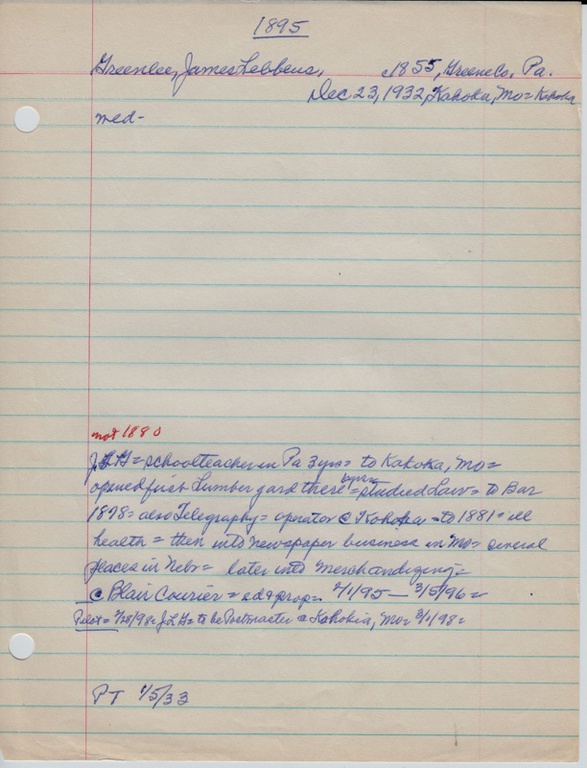 1895
Greenlee, James Lebbeus, c1855, Greene Co, Pa.
Dec 23, 1932, Kahoka, Mo = Kahoka
med-
not 1880
J.L.G = schoolteacher in Pa 3 yrs = to Kahoka, Mo =
opened first Lumber yard there = studied Law = to Bar
1878 = also Telegraphy = operator @ Kahoka = to 1881 = ill
health = then into newspaper business in Mo = several
places in Nebr = later into merchandizing =
@ Blair Courier = ed & prop = 2/1/95 — 3/5/96 =
Pilot = 2/28/98 = J.L.G = to be Postmaster @ Kahokia, Mo = 3/1/98 =
PT 1/5/33